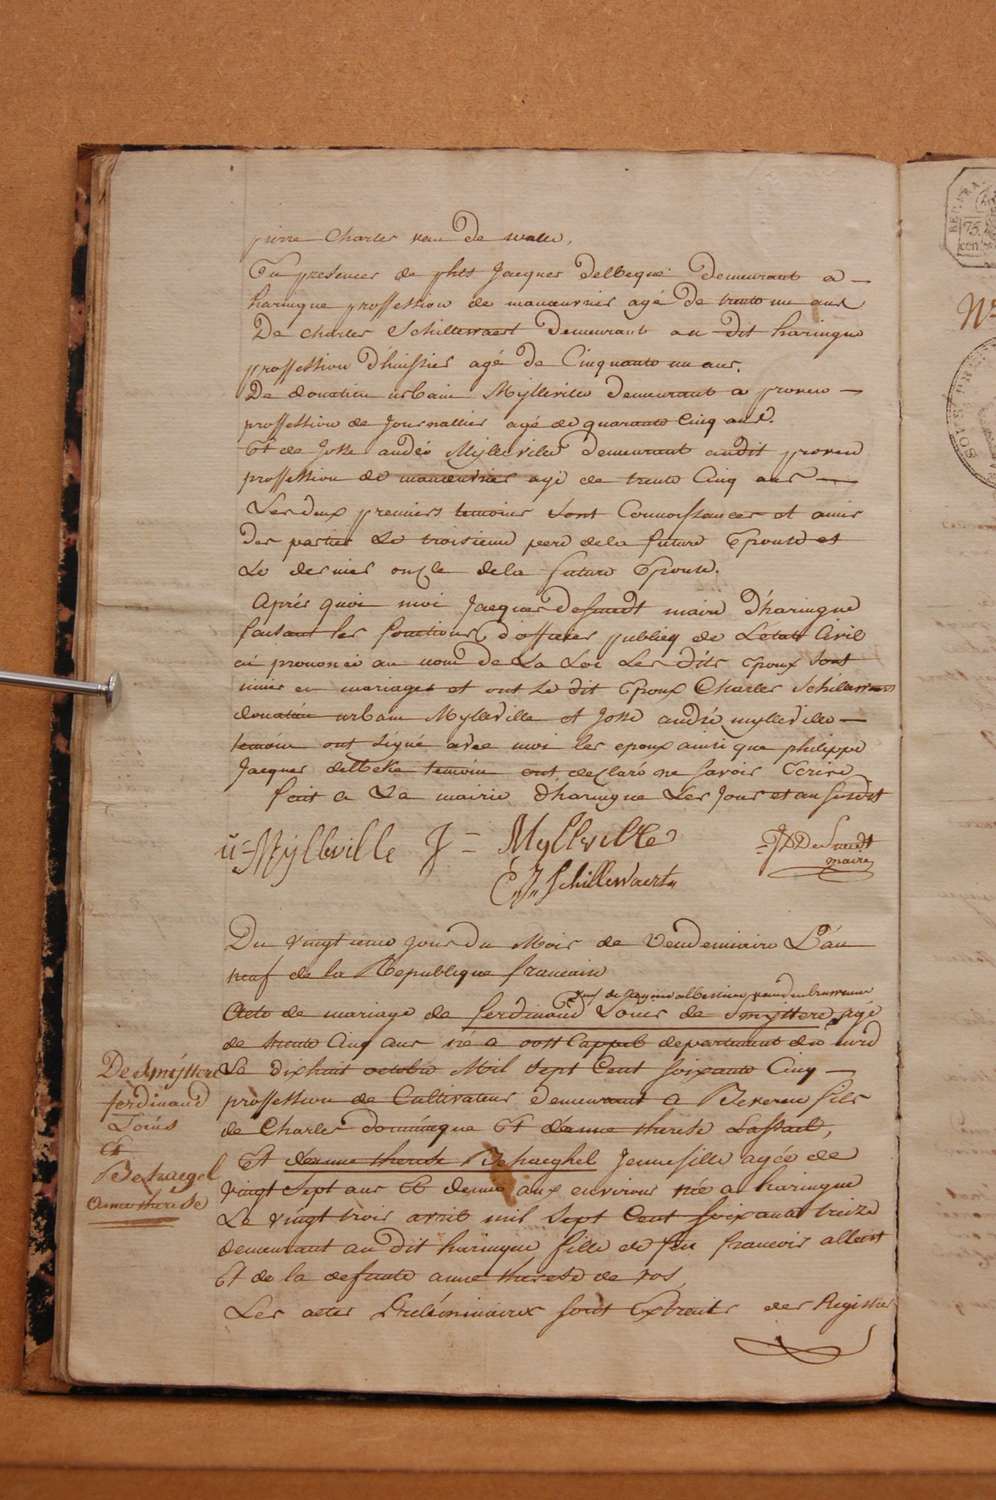 pierre Charles van de walle,
En presences de phls Jacques delbeque demeurant a
haringue proffession de manœuvrier agé de trente un ans
De Charles Schillewaert demeurant au dit haringue
proffession d'huissier agé de Cinquante un ans.
De donatien urbain Mylleville demeurant a proven
proffession de Journallier agé de quarante Cinq ans.
Et de Josse andré Mylleville demeurant audit proven
proffession de manœuvrier agé de trente Cinq ans
Les deux premiers temoins sont Connoissances et amis
Des parties Le troisieme pere de la future Epouse et
Le dernier oncle de la future Epouse.
Aprés quoi moi Jacques Desmedt maire D'haringue
faisant les fonctions d'officier publicq de L'état Civil
ai prononcé au nom De La Loi Les dits Epoux sont
unis en mariage et ont Le dit Epoux Charles Schillewaert
donatien urbain Mylleville et Josse andré mylleville
temoin ont signé avec moi les epoux ainsi que philippe
Jacques delbeke temoin ont declaré ne savoir Ecrire
fait a La mairie d'haringue Les Jour et an susdit
u = Mylleville J = Mylleville J De Smedt
maire
C,, J,, Schillewaert
Du vingtieme Jour du Mois de Vendemiaire L'an
neuf de la Republique francaise
veuf de
Acte de mariage de ferdinand Louis de Smyttere agé
de trente Cinq ans né a oost Cappel departement du nord
Le dixhuit octobre Mil Sept Cent soixante Cinq
proffession de Cultivateur Demeurant a Beveren fils
de Charles dominique Et d'anne therese
Et d'anne therese Behaeghel Jeune fille agée de
vingt Sept ans Et demie aux environs née a haringue
Le vingt trois avril mil Sept Cent soixante treize
demeurant au dit haringue fille de feu francois albert
Et de la defunte anne therese de vos,
Les actes Preleminaires sont Extraits des Registres
De Smÿttere
ferdinand
Loüis
Et
Behaegel
anne therese